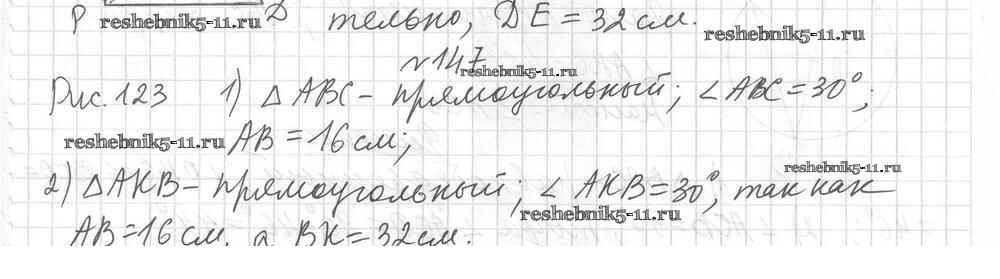 P D тельно, DE = 32 см.
reshebnik5-11.ru reshebnik5-11.ru
№147
reshebnik5-11.ru
Рис. 123 1) △ ABC – прямоугольный; ∠ABC = 30°;
reshebnik5-11.ru AB = 16 см;
reshebnik5-11.ru
2) △AKB – прямоугольный; ∠ AKB = 30°, так как
reshebnik5-11.ru
AB = 16 см, а BK = 32 см.